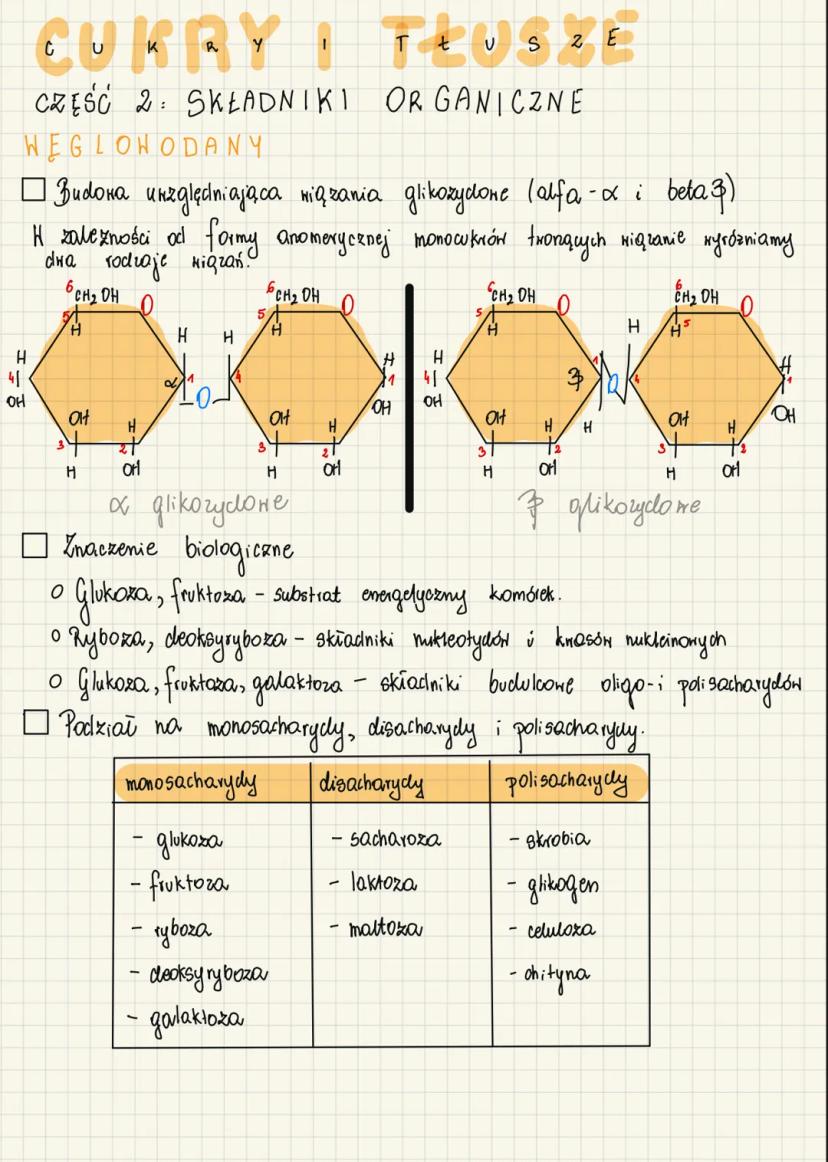 CUKRY I TŁUSZE
CZĘŚĆ 2: SKŁADNIKI ORGANICZNE
WĘGLOWODANY
Budowa uwzględniająca wiązania glikozydowe (alfa-α i beta β)
W zależności od formy anomerycznej monocukrów tworzących wiązanie wyróżniamy
dwa rodzaje wiązań:
6 CH2OH O 6 CH2OH O 6 CH2OH O 6 CH2OH O
5 H H H 5 H 5 H H 5 H
H 4 OH α 1 O 4 H 1 OH H 4 OH β 1 O 4 H 1 OH
OH H OH H OH H H OH H
3 2 3 2 3 2 3 2
H OH H OH H OH H OH
α glikozydowe β glikozydowe
Znaczenie biologiczne
o Glukoza, fruktoza - substrat energetyczny komórek.
o Ryboza, deoksyryboza - składniki nukleotydów i kwasów nukleinowych
o Glukoza, fruktoza, galaktoza - składniki budulcowe oligo-i polisacharydów
Podział na monosacharydy, disacharydy i polisacharydy.
monosacharydy disacharydy polisacharydy
- glukoza - sacharoza - skrobia
- fruktoza - laktoza - glikogen
- ryboza - maltoza - celuloza
- deoksyryboza - chityna
- galaktoza